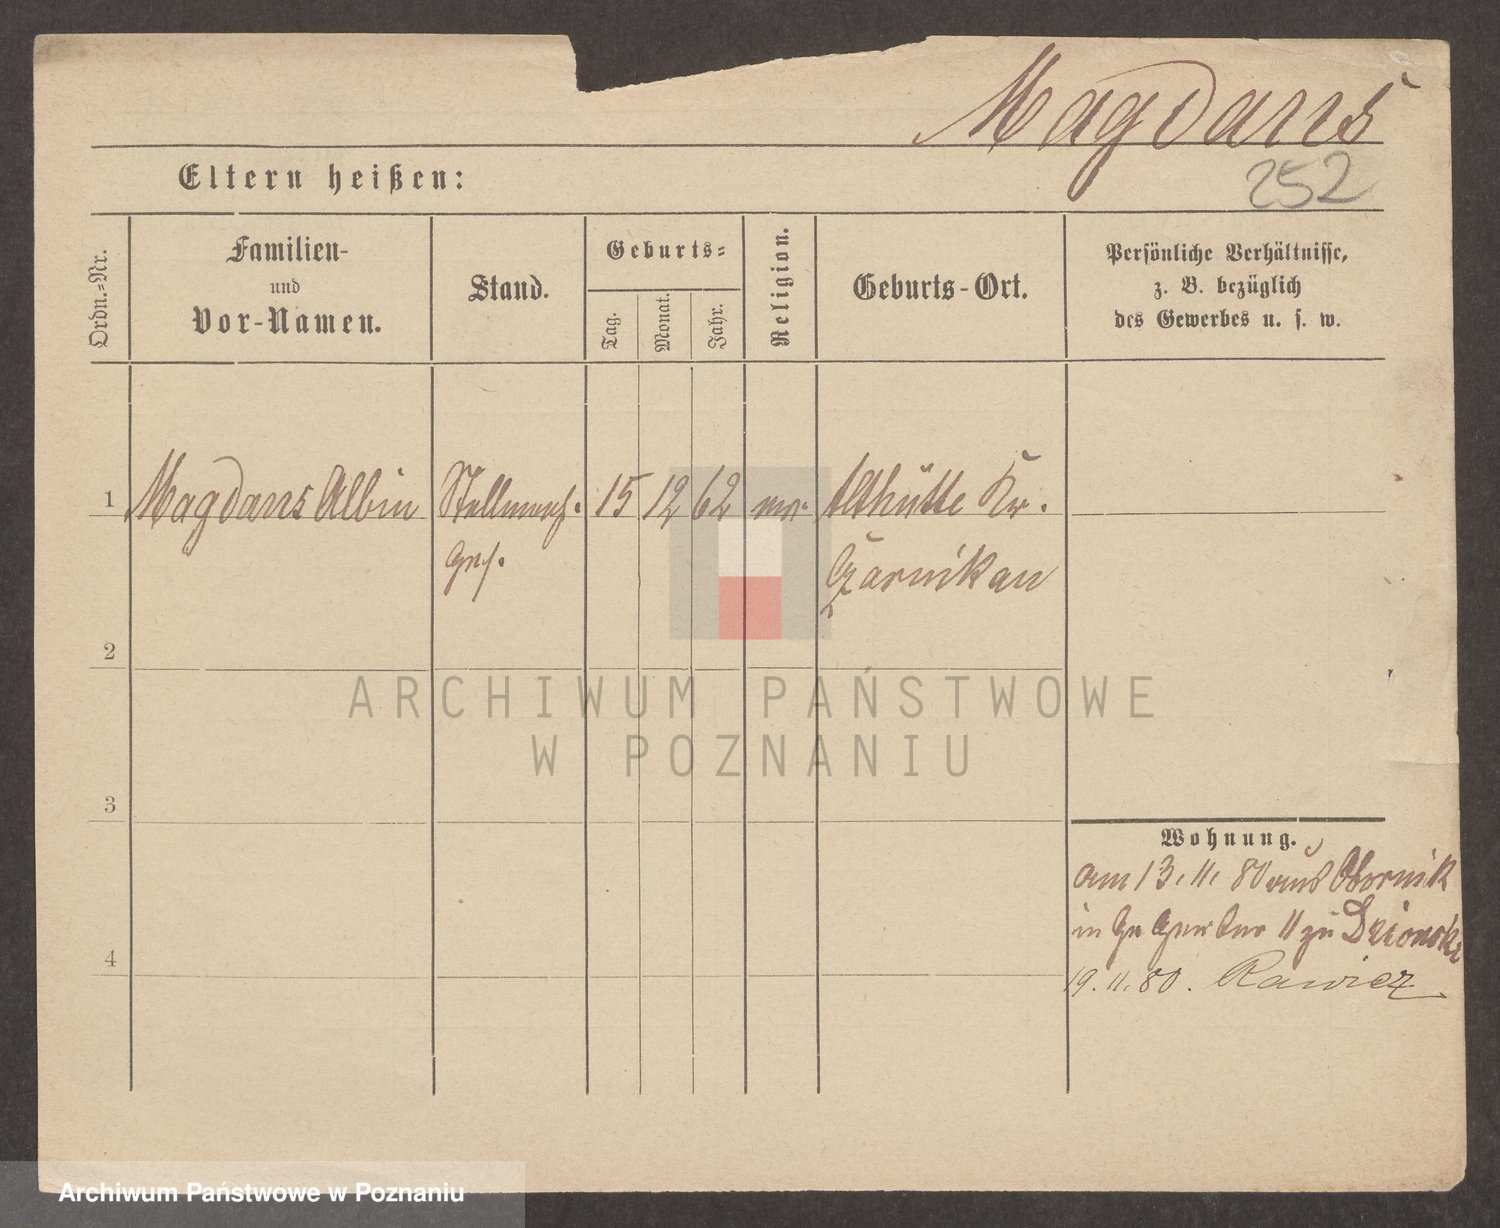 Magdans
252
Eltern heißen:
Ordn.-Nr.
Familien-
und
Vor-Namen.
Stand.
Geburts-
Tag.
Monat.
Jahr.
Religion.
Geburts-Ort.
Persönliche Verhältnisse,
z. B. bezüglich
des Gewerbes u. s. w.
1 Magdans Albin Stellmach. 15 12 62 Althütte Kr.
Ges. Czarnikau
2
3
4
ARCHIWUM PAŃSTWOWE
W POZNANIU
Wohnung.
am 13.11.80 aus Obornik
in 11 zu Dzionski
19.11.80. Rawicz
Archiwum Państwowe w Poznaniu